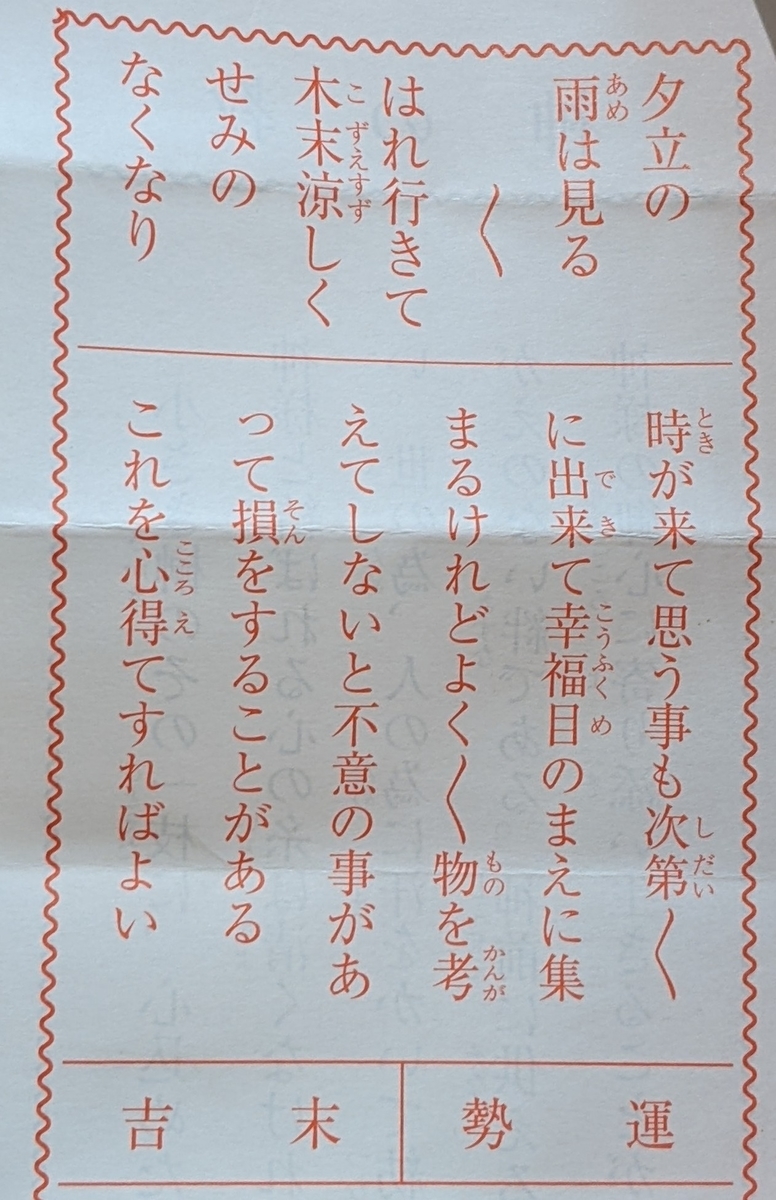 夕立の
雨は見る
〱
はれ行きて
木末涼しく
せみの
なくなり
時が来て思う事も次第〱
に出来て幸福目のまえに集
まるけれどよく〱物を考
えてしないと不意の事があ
って損をすることがある
これを心得てすればよい
運勢
末吉